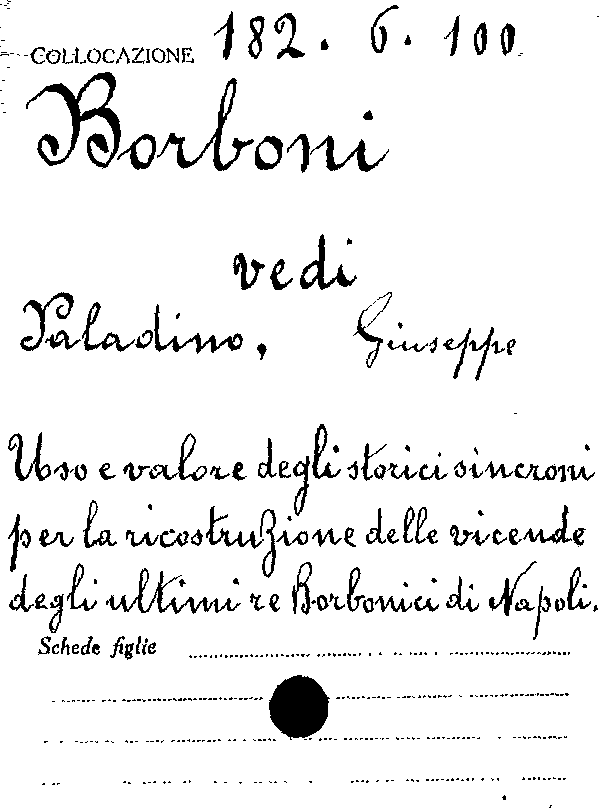 COLLOCAZIONE 182. 6. 100
Borboni
vedi
Paladino, Giuseppe
Uso e valore degli storici sincroni
per la ricostruzione delle vicende
degli ultimi re Borbonici di Napoli.
Schede figlie